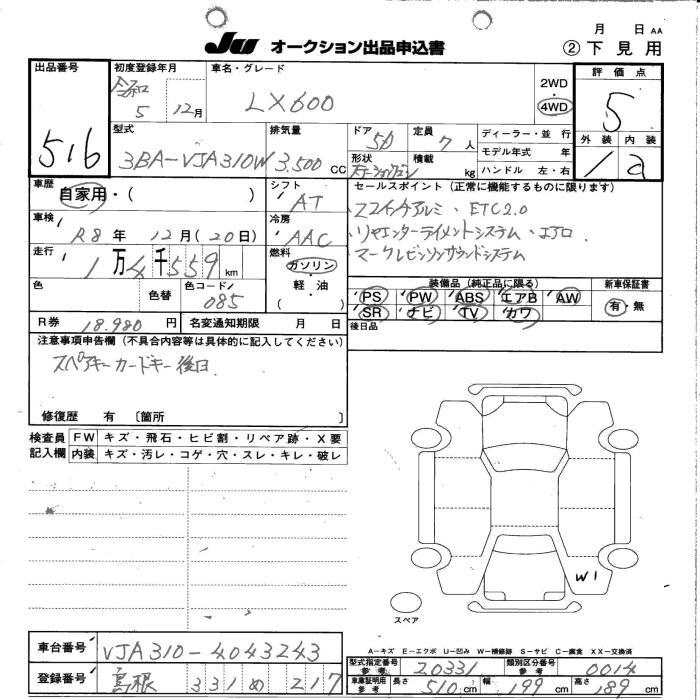 月 日 AA
Ju オークション出品申込書 ② 下見用
出品番号 初度登録年月 車名・グレード 2WD ・ 4WD 評価点
516 令和 5 12月 LX600 5
外装 内装
1 a
型式 排気量 ドア 定員 ディーラー・並行
3BA-VJA310W 3.500 CC 5D 7人 モデル年式 年
形状 積載 ハンドル 左・右
ステーションワゴン kg
車歴 自家用・( ) シフト AT セールスポイント (正常に機能するものに限ります)
車検 R8年 12月(20日) 冷房 AAC
22インチアルミ・ETC2.0
リヤエンターテイメントシステム・エアロ
マークレビンソンサウンドシステム
走行 1万4千559km 燃料 ガソリン・軽油 ( )
色 色替 色コード 085
装備品 (純正品に限る) 新車保証書
PS PW ABS エアB AW 有・無
SR ナビ TV カワ
後日品
R券 18.980円 名変通知期限 月 日
注意事項申告欄 (不具合内容等は具体的に記入してください)
スペアキーカードキー後日
修復歴 有 [箇所 ]
検査員記入欄 FW キズ・飛石・ヒビ割・リペア跡・X要
内装 キズ・汚レ・コゲ・穴・スレ・キレ・破レ
W1
スペア
A-キズ E-エクボ U-凹み W-補修跡 S-サビ C-腐食 XX-交換済
車台番号 VJA310-4043243 型式指定番号 参考 20331 類別区分番号 参考 0014
登録番号 島根 331 め 217 車庫証明用 参考 長さ 510cm 幅 199cm 高さ 189cm